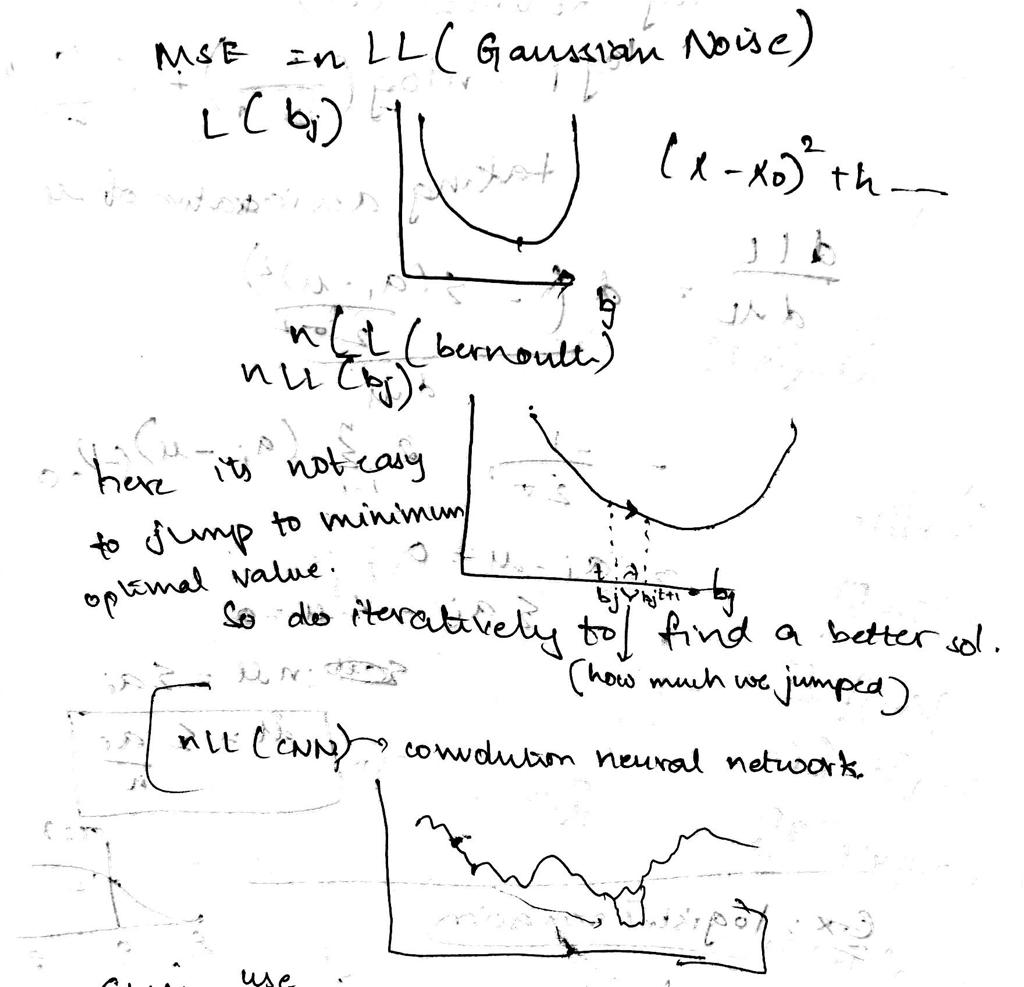 MSE in LL ( Gaussian Noise)
L ( bj)
(x - x0)² + h
bj
nLL (bernoulli)
nLL (bj).
here its not easy
to jump to minimum
optimal value.
bj^t bj^t+1 bj
So do iteratively to find a better sol.
(how much we jumped)
nLL (CNN) → convolution neural network.
use